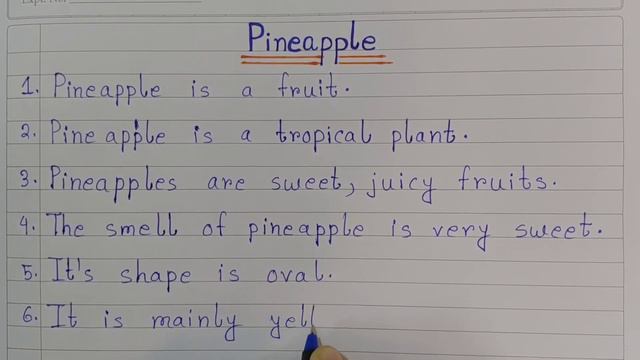 Pineapple
1. Pineapple is a fruit.
2. Pineapple is a tropical plant.
3. Pineapples are sweet, juicy fruits.
4. The smell of pineapple is very sweet.
5. It's shape is oval.
6. It is mainly yell